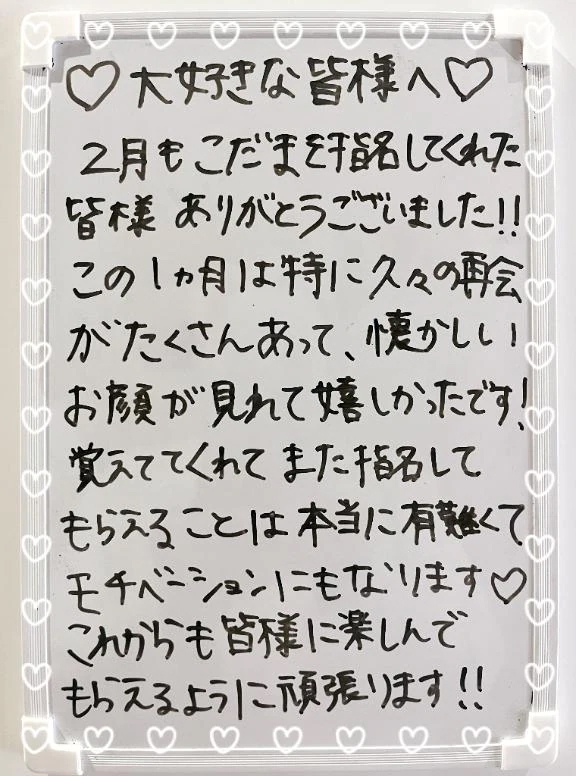 ♡大好きな皆様へ♡
2月もこだまを指名してくれた
皆様 ありがとうございました!!
この1ヵ月は特に久々の再会
がたくさんあって、懐かしい
お顔が見れて嬉しかったです!
覚えててくれてまた指名して
もらえることは本当に有難くて
モチベーションにもなります♡
これからも皆様に楽しんで
もらえるように頑張ります!!